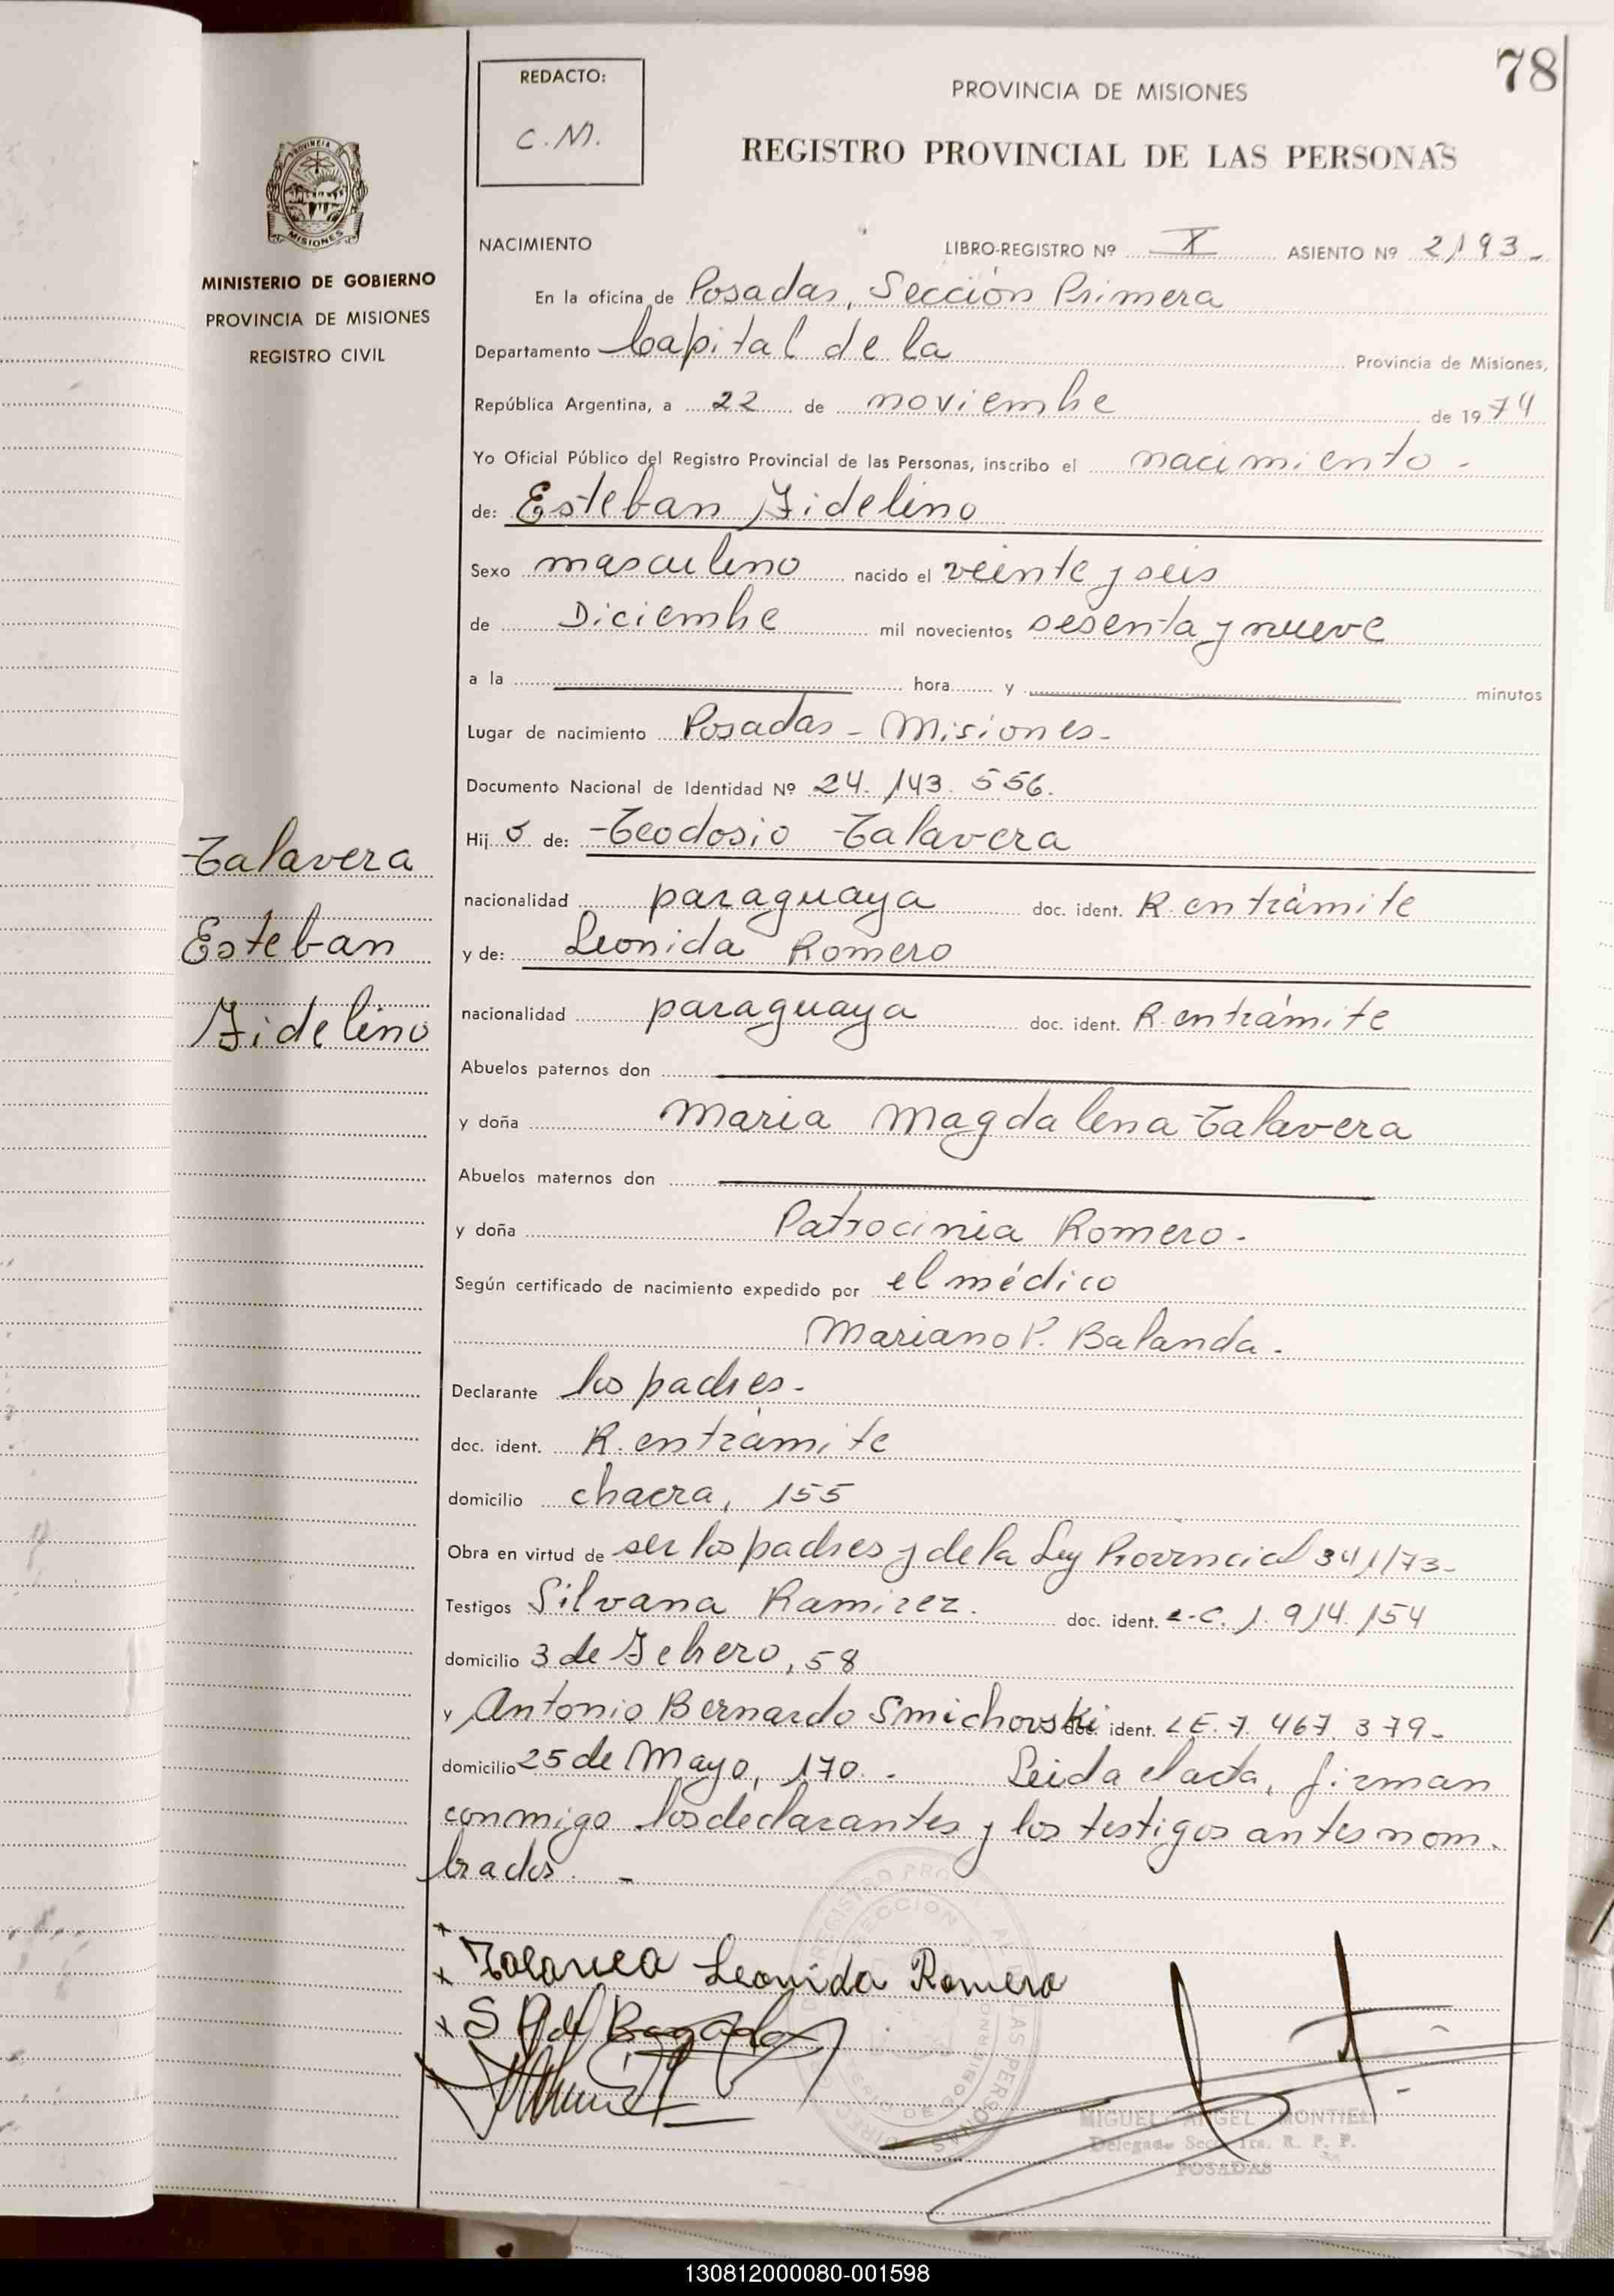 78
REDACTO:
C.M.
PROVINCIA DE MISIONES
REGISTRO PROVINCIAL DE LAS PERSONAS
PROVINCIA DE
MISIONES
MINISTERIO DE GOBIERNO
PROVINCIA DE MISIONES
REGISTRO CIVIL
NACIMIENTO LIBRO-REGISTRO Nº X ASIENTO Nº 2193-
En la oficina de Posadas, Sección Primera
Departamento Capital de la Provincia de Misiones,
República Argentina, a 22 de noviembre de 1974
Yo Oficial Público del Registro Provincial de las Personas, inscribo el nacimiento-
de: Esteban Fidelino
Sexo masculino nacido el veinte y seis
de Diciembre mil novecientos sesenta y nueve
a la hora y minutos
Lugar de nacimiento Posadas - Misiones-
Documento Nacional de Identidad Nº 24.143.556.
Hijo de: Teodosio Talavera
nacionalidad paraguaya doc. ident. R. en trámite
y de: Leonida Romero
nacionalidad paraguaya doc. ident. R. en trámite
Talavera
Esteban
Fidelino
Abuelos paternos don
y doña Maria Magdalena Talavera
Abuelos maternos don
y doña Patrocinia Romero-
Según certificado de nacimiento expedido por el médico
Mariano P. Balanda.
Declarante los padres-
doc. ident. R. en trámite
domicilio chacra, 155
Obra en virtud de ser los padres y de la Ley Provincial 341/73-
Testigos Silvana Ramirez. doc. ident. L.C. 1.914.154
domicilio 3 de Febrero, 58
y Antonio Bernardo Smichovski doc. ident. L.E. 7.467.379-
domicilio 25 de Mayo, 170.- Leida el acta, firman
conmigo los declarantes y los testigos antes nom-
brados.-
Talavera Leonida Romero
MIGUEL ANGEL MONTIEL
Delegado Secc. 1ra. R. P. P.
POSADAS
130812000080-001598